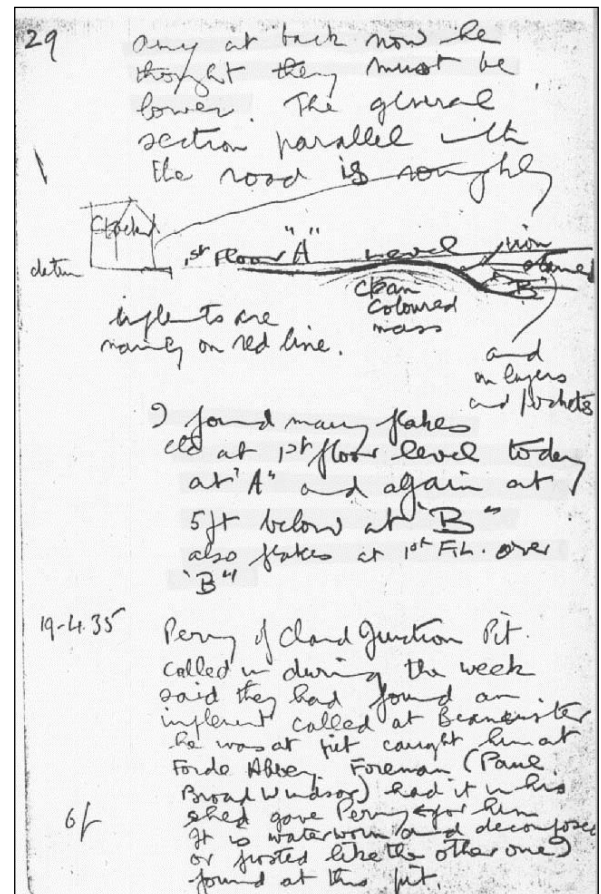 29
any at back now he
thought they must be
lower. The general
section parallel with
the road is roughly
datum
1st Floor "A" Level
iron
stained
"B"
clean
coloured
mass
implents are
mainly on red line.
and
in layers
and pockets
I found many flakes
at 1st floor level today
at "A" and again at
5ft below at "B"
also flakes at 1st F.L. over
"B"
19-4-35
Perry of Chard Junction Pit.
called in during the week
said they had found an
implent called at Beaminster
he was at pit caught him at
Forde Abbey. Foreman (Paul
Broad Windsor) had it in his
shed gave Perry for him
It is waterworn and decomposed
or frosted like the other one)
found at this pit.
6/-